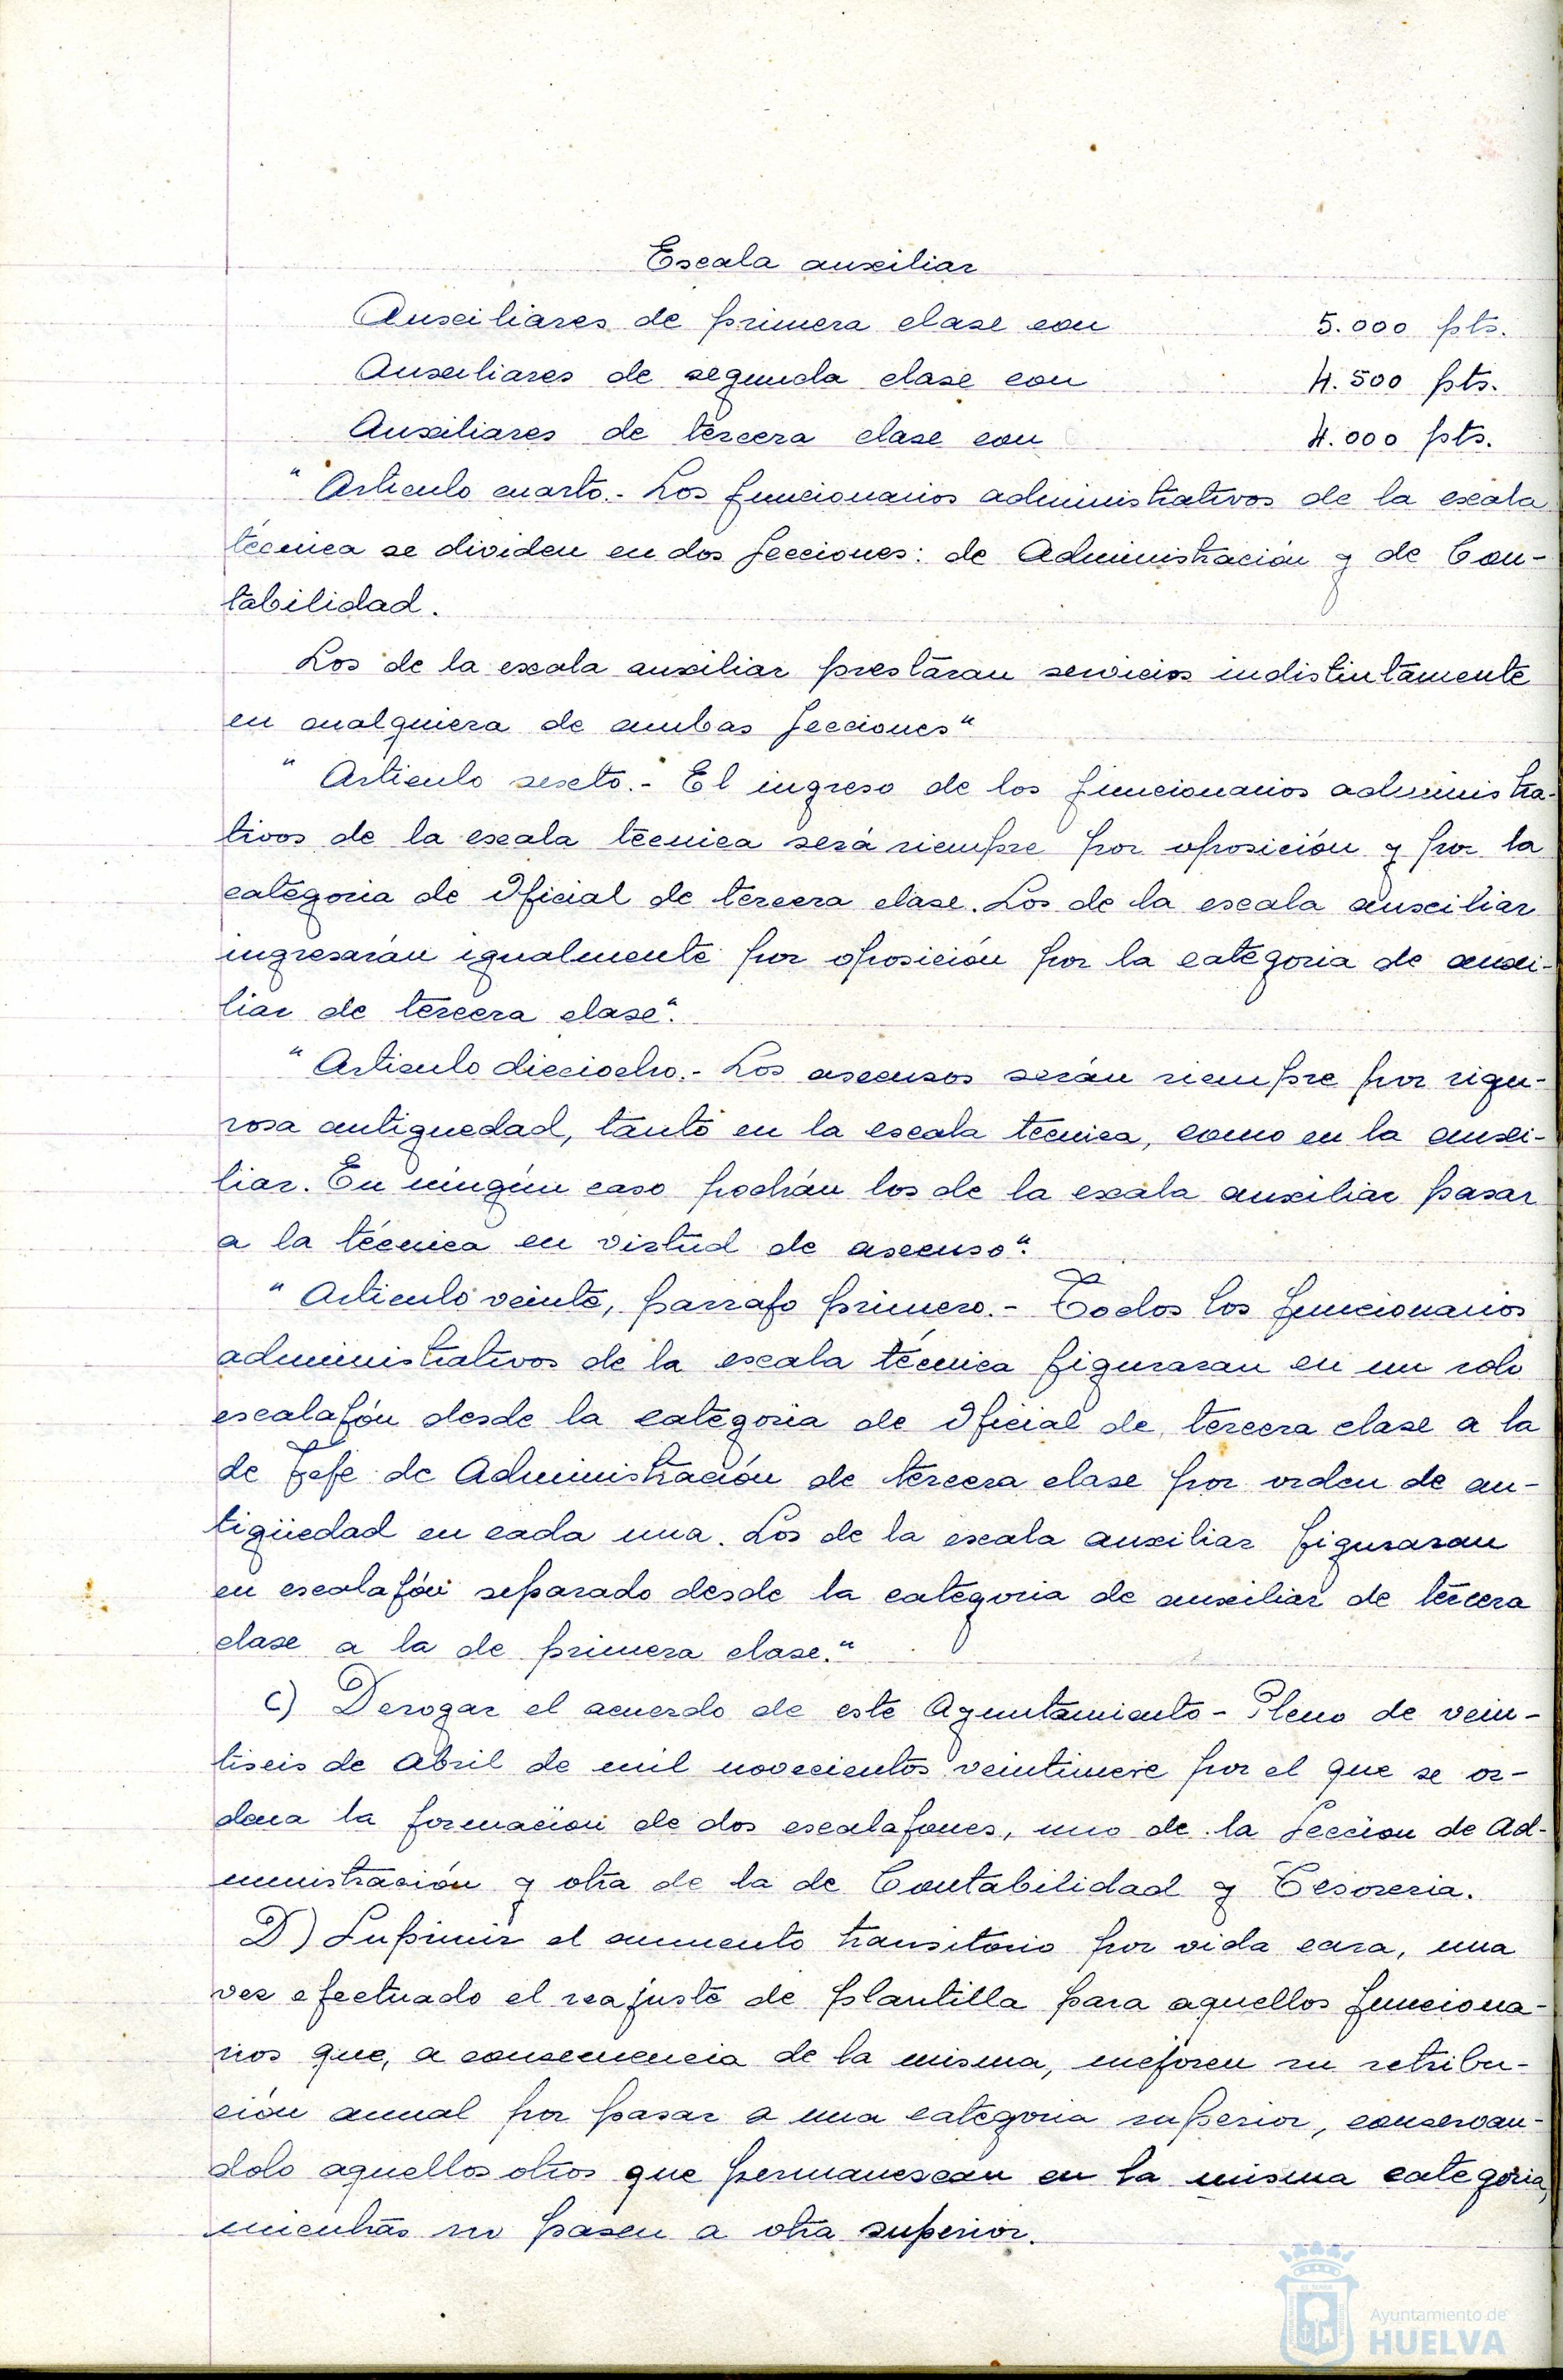 Escala auxiliar
Auxiliares de primera clase con 5.000 pts.
Auxiliares de segunda clase con 4.500 pts.
Auxiliares de tercera clase con 4.000 pts.
"Articulo cuarto.- Los funcionarios administrativos de la escala
técnica se dividen en dos Secciones: de Administración y de Con-
tabilidad.
Los de la escala auxiliar prestaran servicios indistintamente
en cualquiera de ambas Secciones"
"Articulo sexto.- El ingreso de los funcionarios administra-
tivos de la escala técnica será siempre por oposición y por la
categoria de Oficial de tercera clase. Los de la escala auxiliar
ingresarán igualmente por oposición por la categoria de auxi-
liar de tercera clase".
"Articulo dieciocho.- Los ascensos serán siempre por rigu-
rosa antiguedad, tanto en la escala técnica, como en la auxi-
liar. En ningún caso podrán los de la escala auxiliar pasar
a la técnica en virtud de ascenso".
"Articulo veinte, parrafo primero.- Todos los funcionarios
administrativos de la escala técnica figuraran en un solo
escalafón desde la categoria de Oficial de tercera clase a la
de Jefe de Administración de tercera clase por orden de an-
tigüedad en cada una. Los de la escala auxiliar figuraran
en escalafón separado desde la categoria de auxiliar de tercera
clase a la de primera clase."
C) Derogar el acuerdo de este Ayuntamiento-Pleno de vein-
tiseis de Abril de mil novecientos veintinueve por el que se or-
dena la formación de dos escalafones, uno de la Sección de Ad-
ministración y otra de la de Contabilidad y Tesoreria.
D) Suprimir el aumento transitorio por vida cara, una
vez efectuado el reajuste de plantilla para aquellos funciona-
rios que, a consecuencia de la misma, mejoren su retribu-
ción anual por pasar a una categoria superior, conservan-
dolo aquellos otros que permanezcan en la misma categoria,
mientras no pasen a otra superior.
Ayuntamiento de
HUELVA